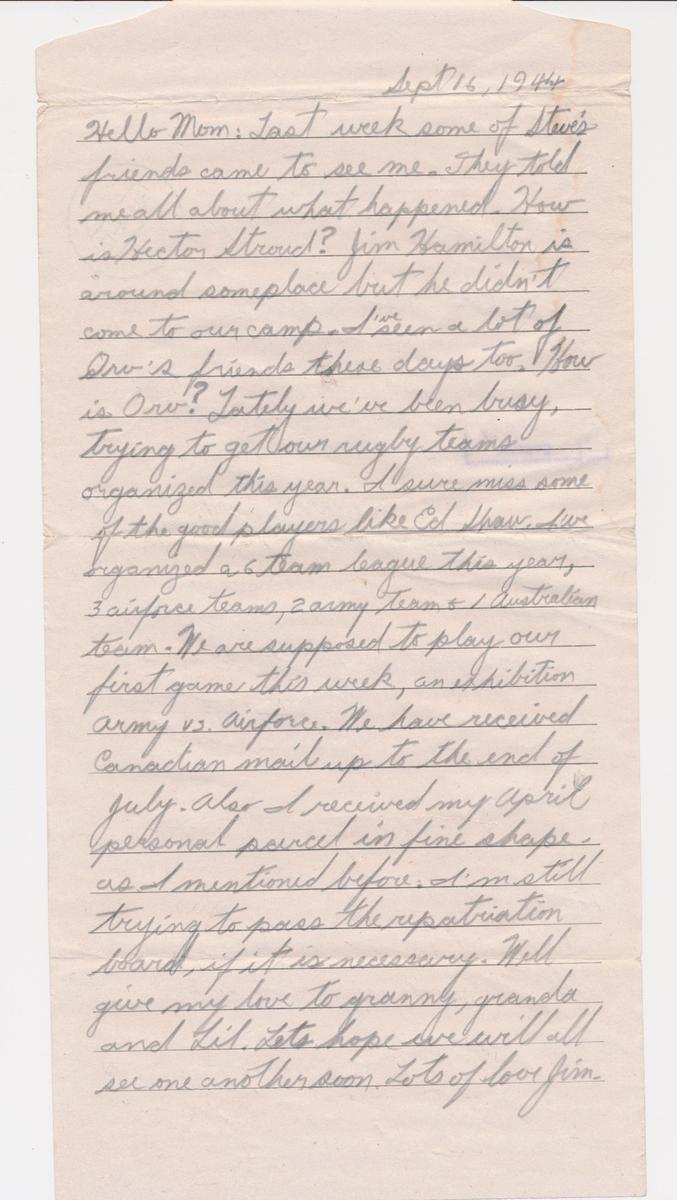 Sept 16, 1944
Hello Mom: Last week some of Steve's
friends came to see me. They told
me all about what happened. How
is Hector Stroud? Jim Hamilton is
around someplace but he didn't
come to our camp. I've seen a lot of
Orv's friends these days too. How
is Orv? Lately we've been busy,
trying to get our rugby teams
organized this year. I sure miss some
of the good players like Ed Shaw. I've
organized a 6 team league this year,
3 airforce teams, 2 army team & 1 Australian
team. We are supposed to play our
first game this week, an exhibition
Army vs. Airforce. We have received
Canadian mail up to the end of
July. Also I received my April
personal parcel in fine shape.
as I mentioned before. I'm still
trying to pass the repatriation
board, if it is necessary. Well
give my love to granny, granda
and Lil. Lets hope we will all
see one another soon. Lots of love Jim.